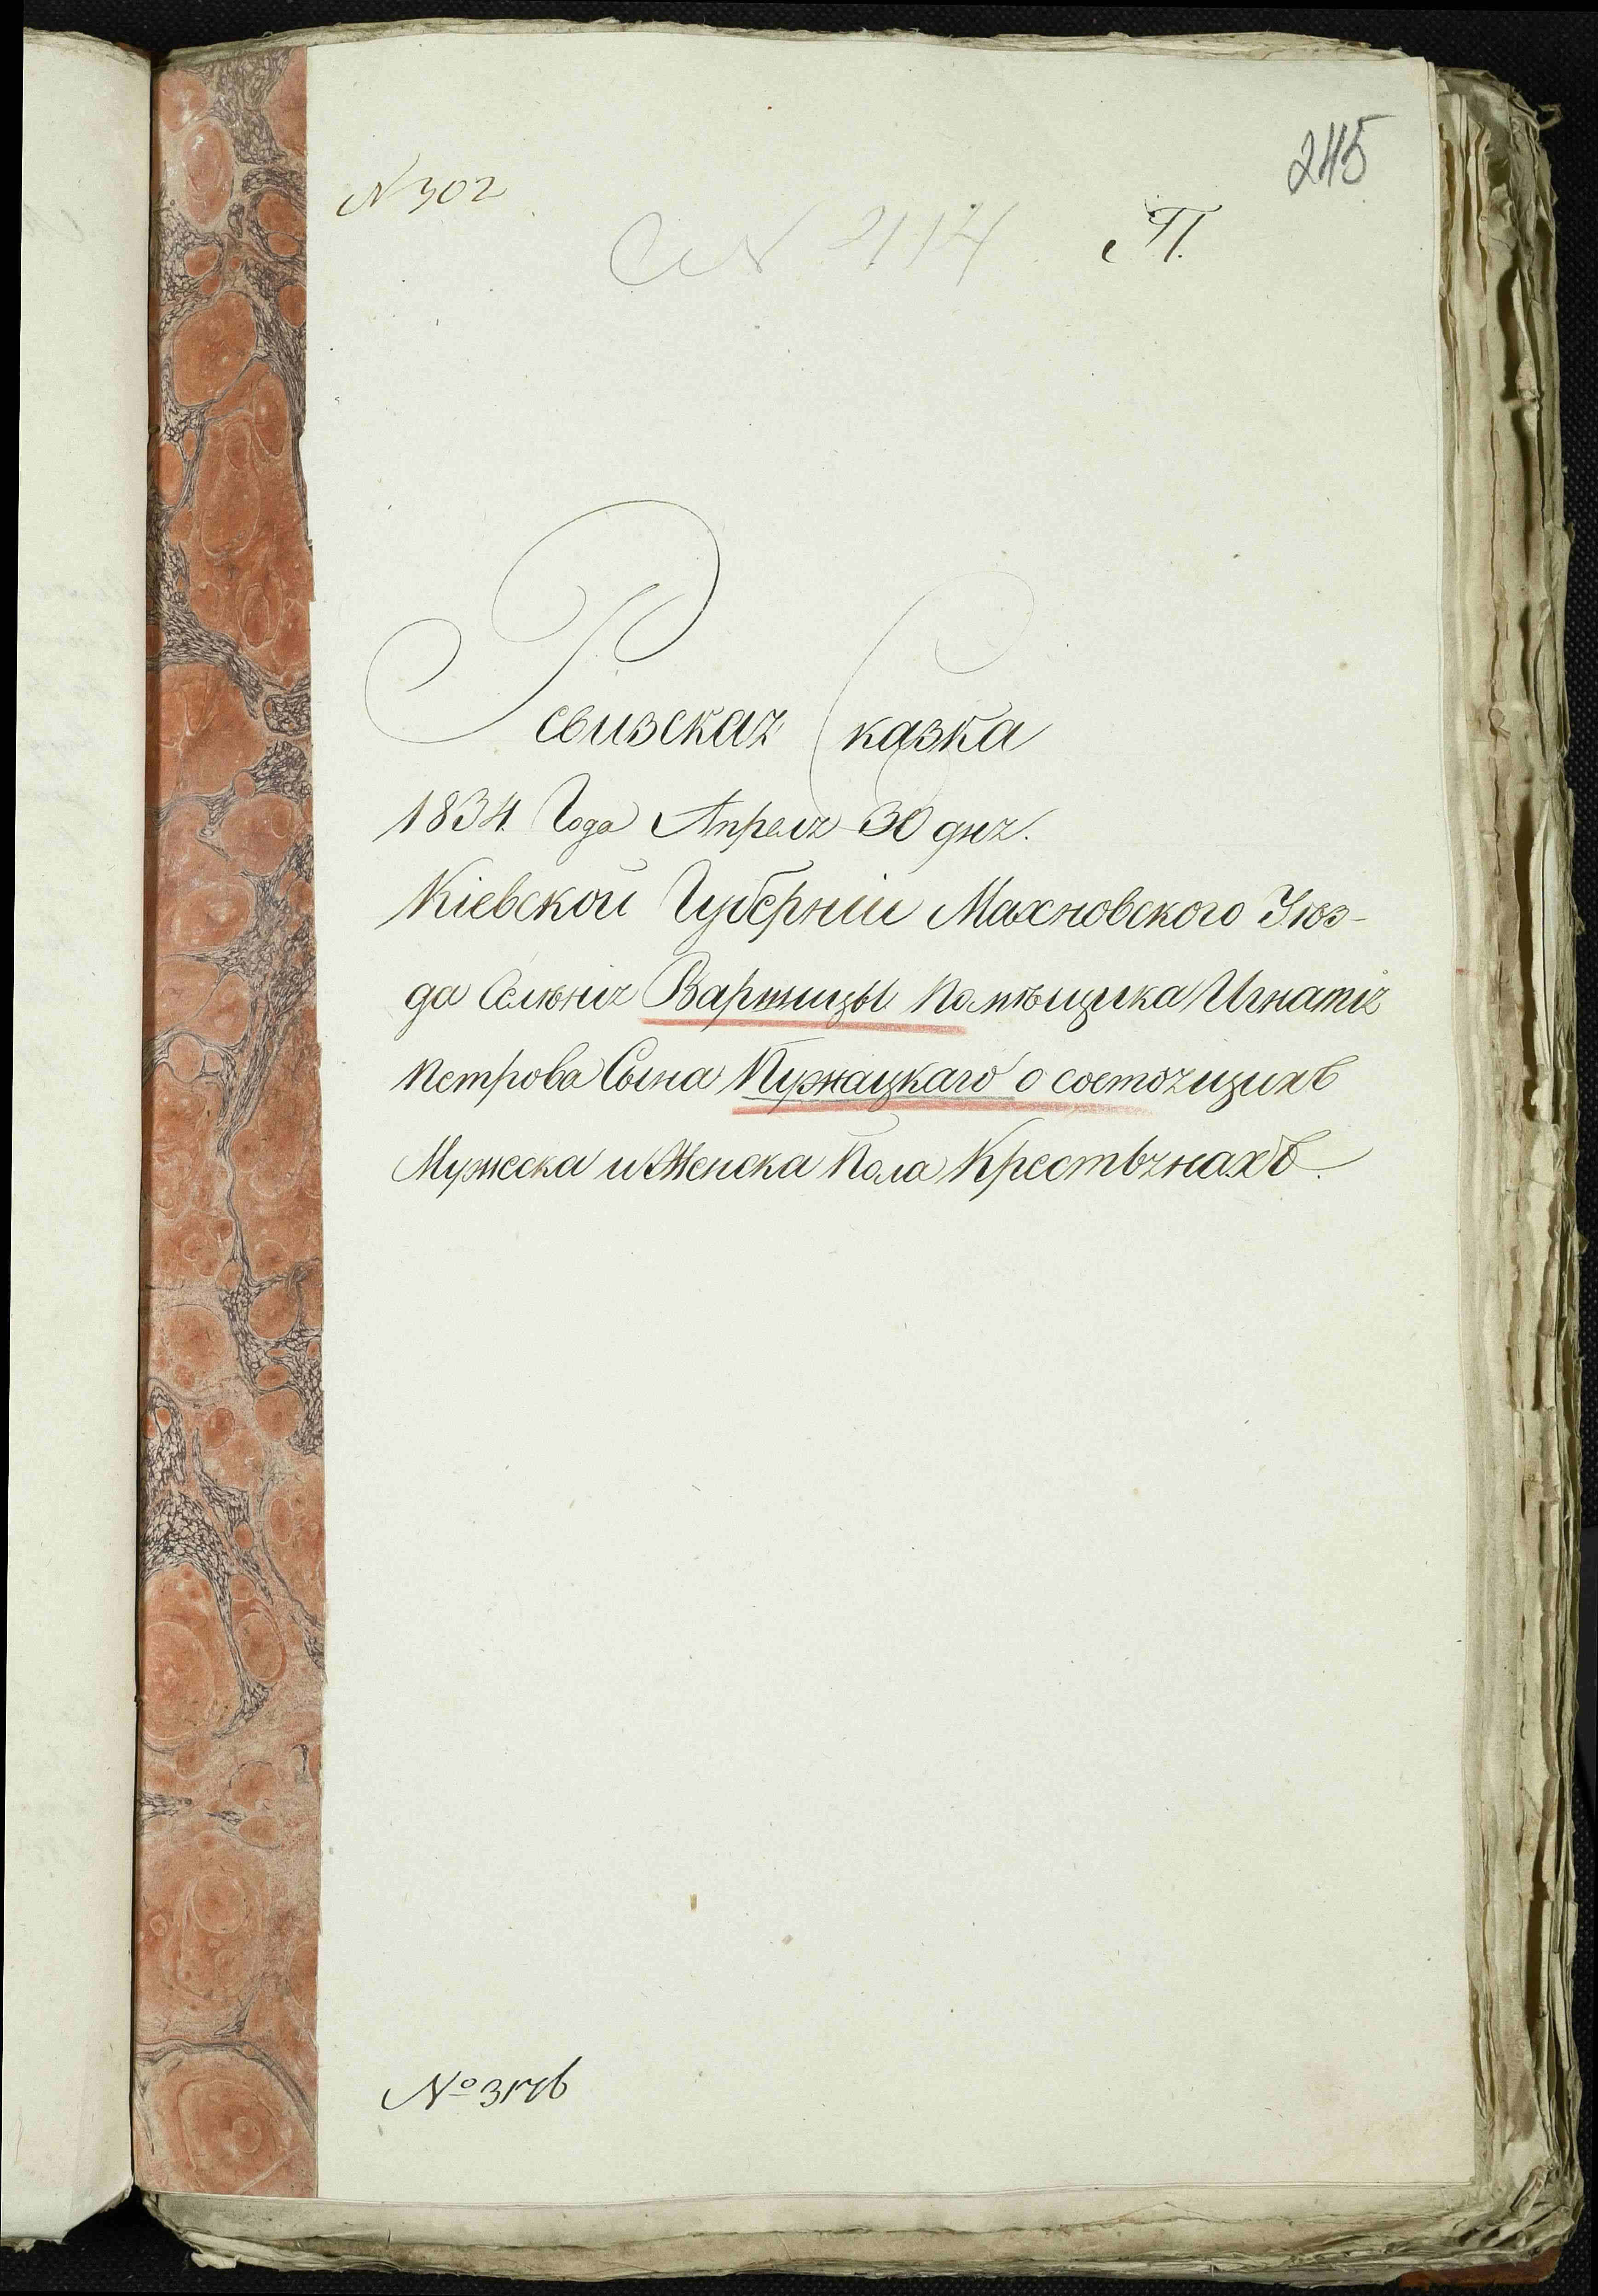 245
N 302
N 2114
П.
Ревизская Сказка
1834 Года Апреля 30 дня.
Кіевской Губерніи Махновского Уѣз-
да Селѣнія Варшицы Помѣщика Игнатія
Петрова Сына Пужацкаго о состоящихъ
Мужеска и Женска Пола Крестьянахъ.
№